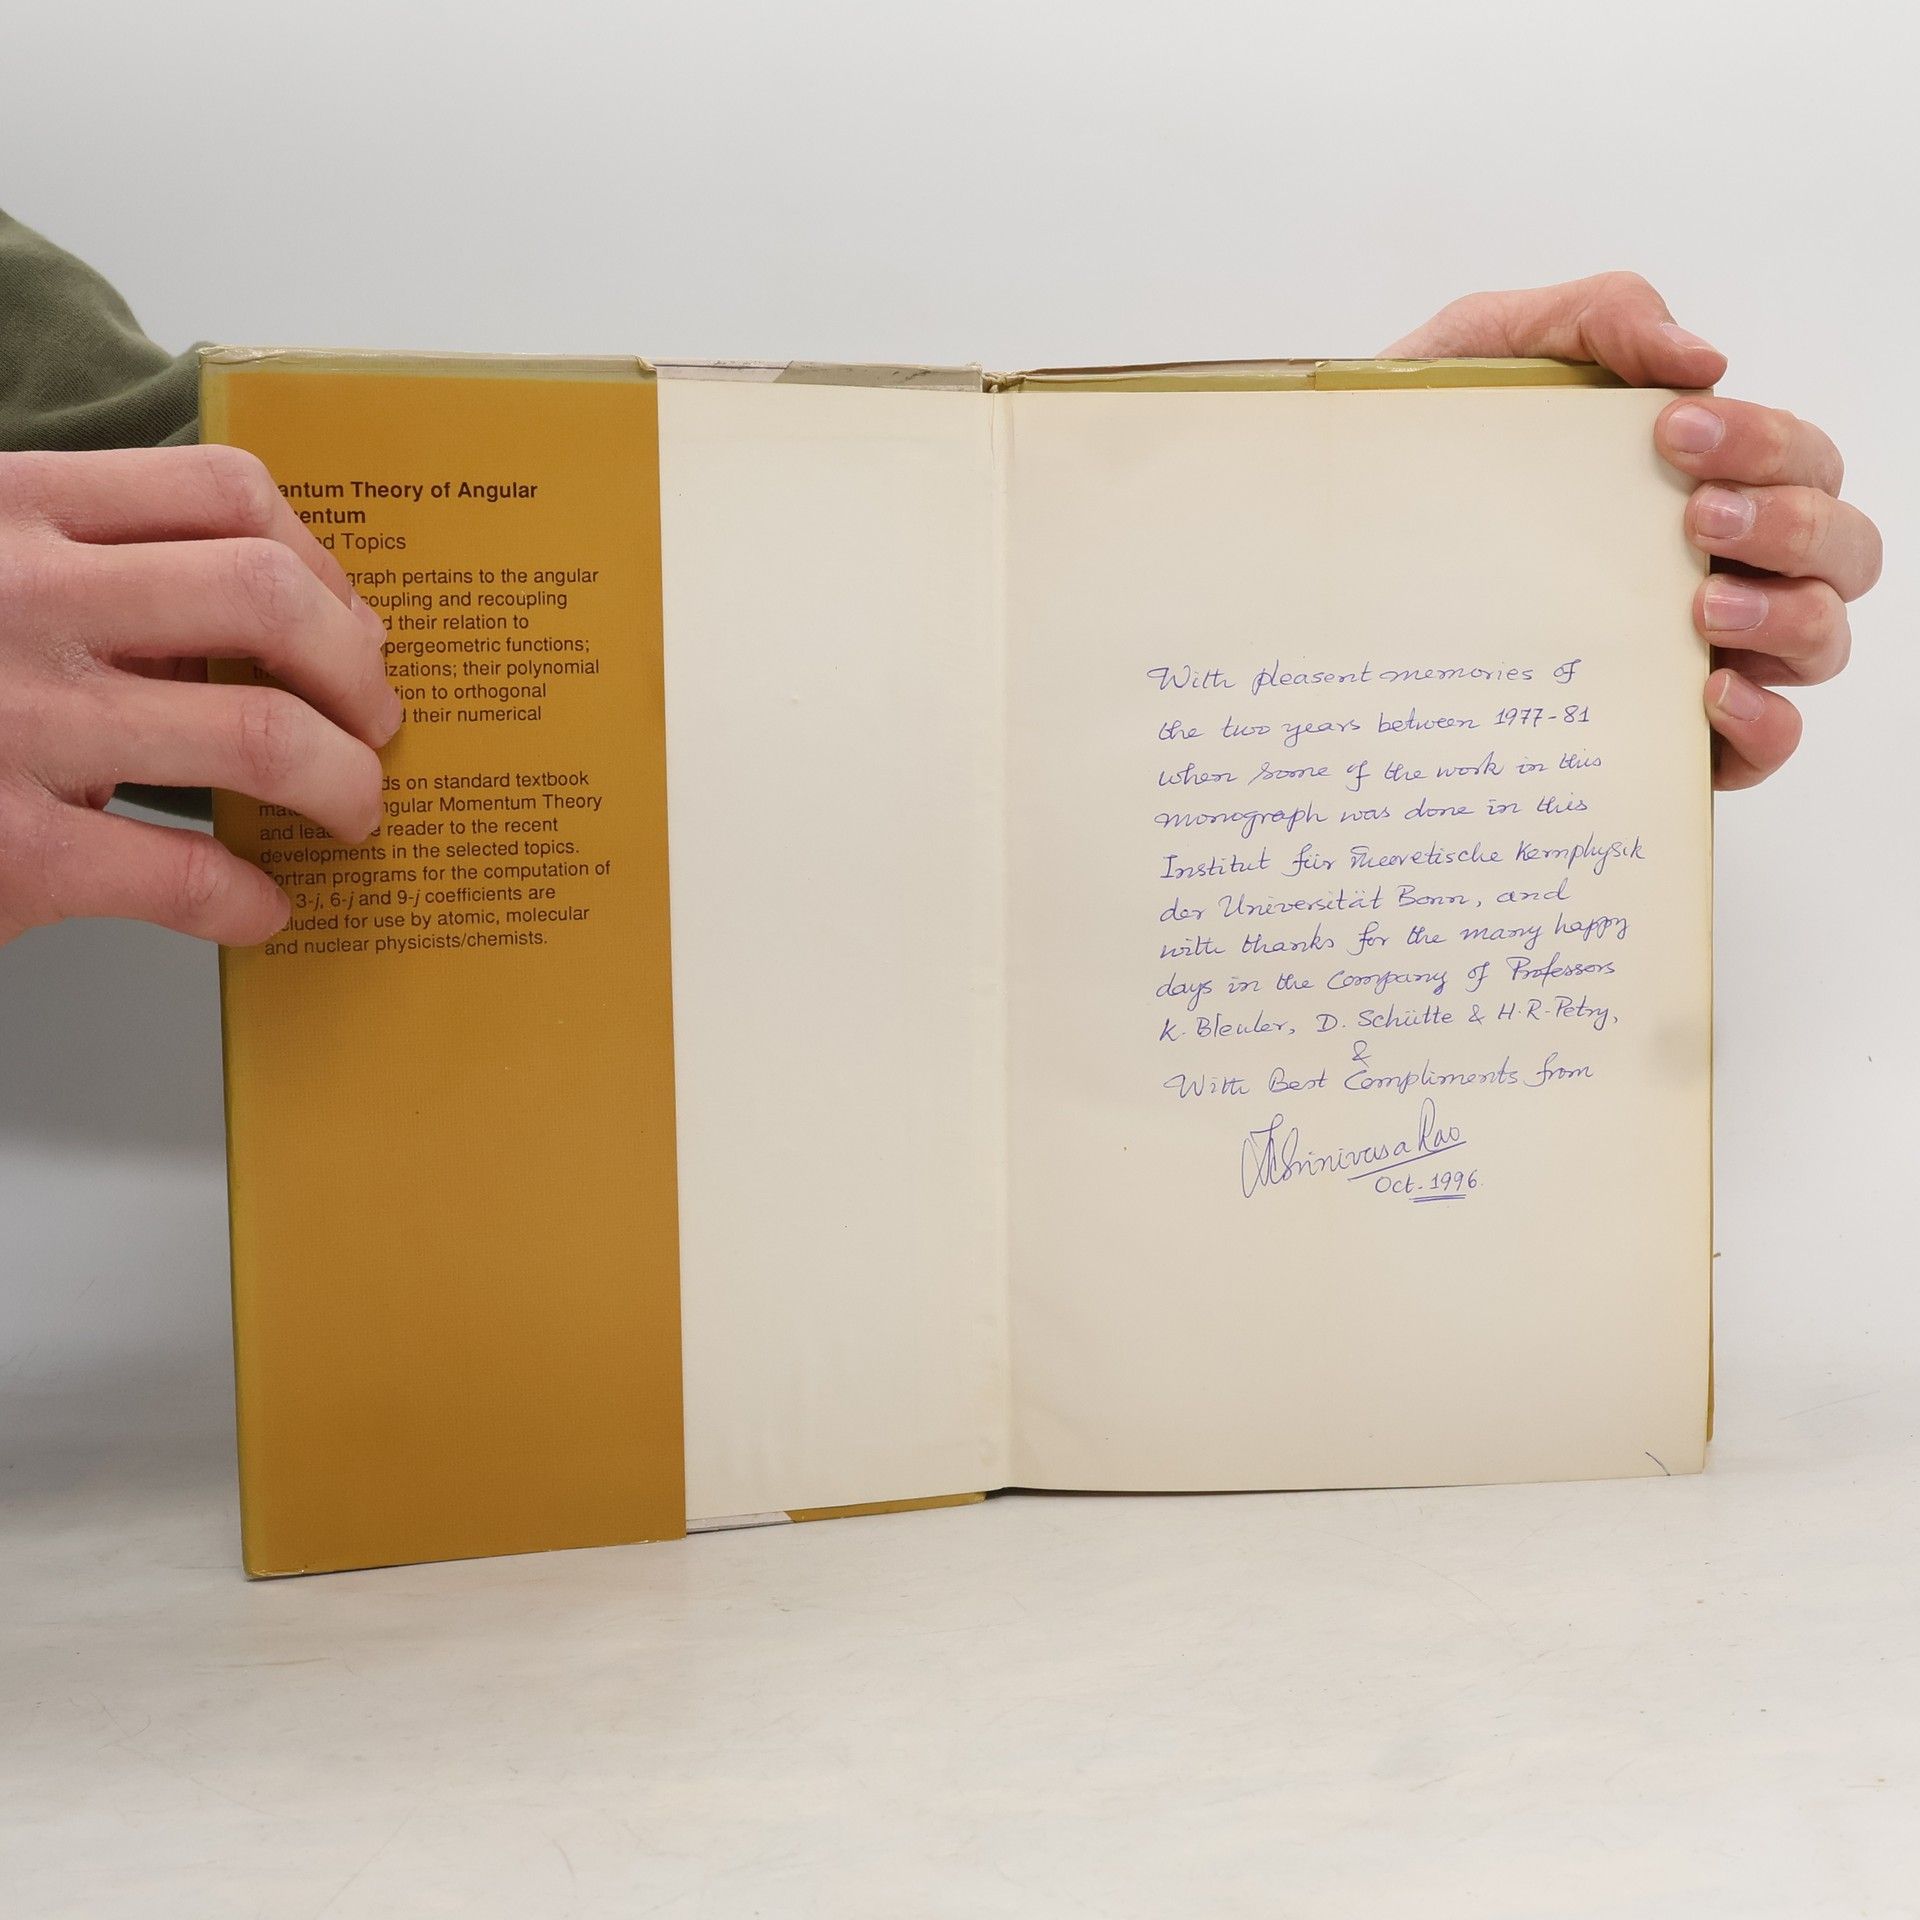 antum Theory of Angular
entum
ed Topics
graph pertains to the angular
coupling and recoupling
d their relation to
pergeometric functions;
izations; their polynomial
tion to orthogonal
d their numerical
ds on standard textbook
ngular Momentum Theory
and lea e reader to the recent
developments in the selected topics.
Fortran programs for the computation of
3-j, 6-j and 9-j coefficients are
cluded for use by atomic, molecular
and nuclear physicists/chemists.
With pleasent memories of
the two years between 1977-81
when some of the work in this
monograph was done in this
Institut für Theoretische Kernphysik
der Universität Bonn, and
with thanks for the many happy
days in the Company of Professors
K. Bleuler, D. Schütte & H.R. Petry,
&
With Best Compliments from
K Srinivasa Rao
Oct. 1996.